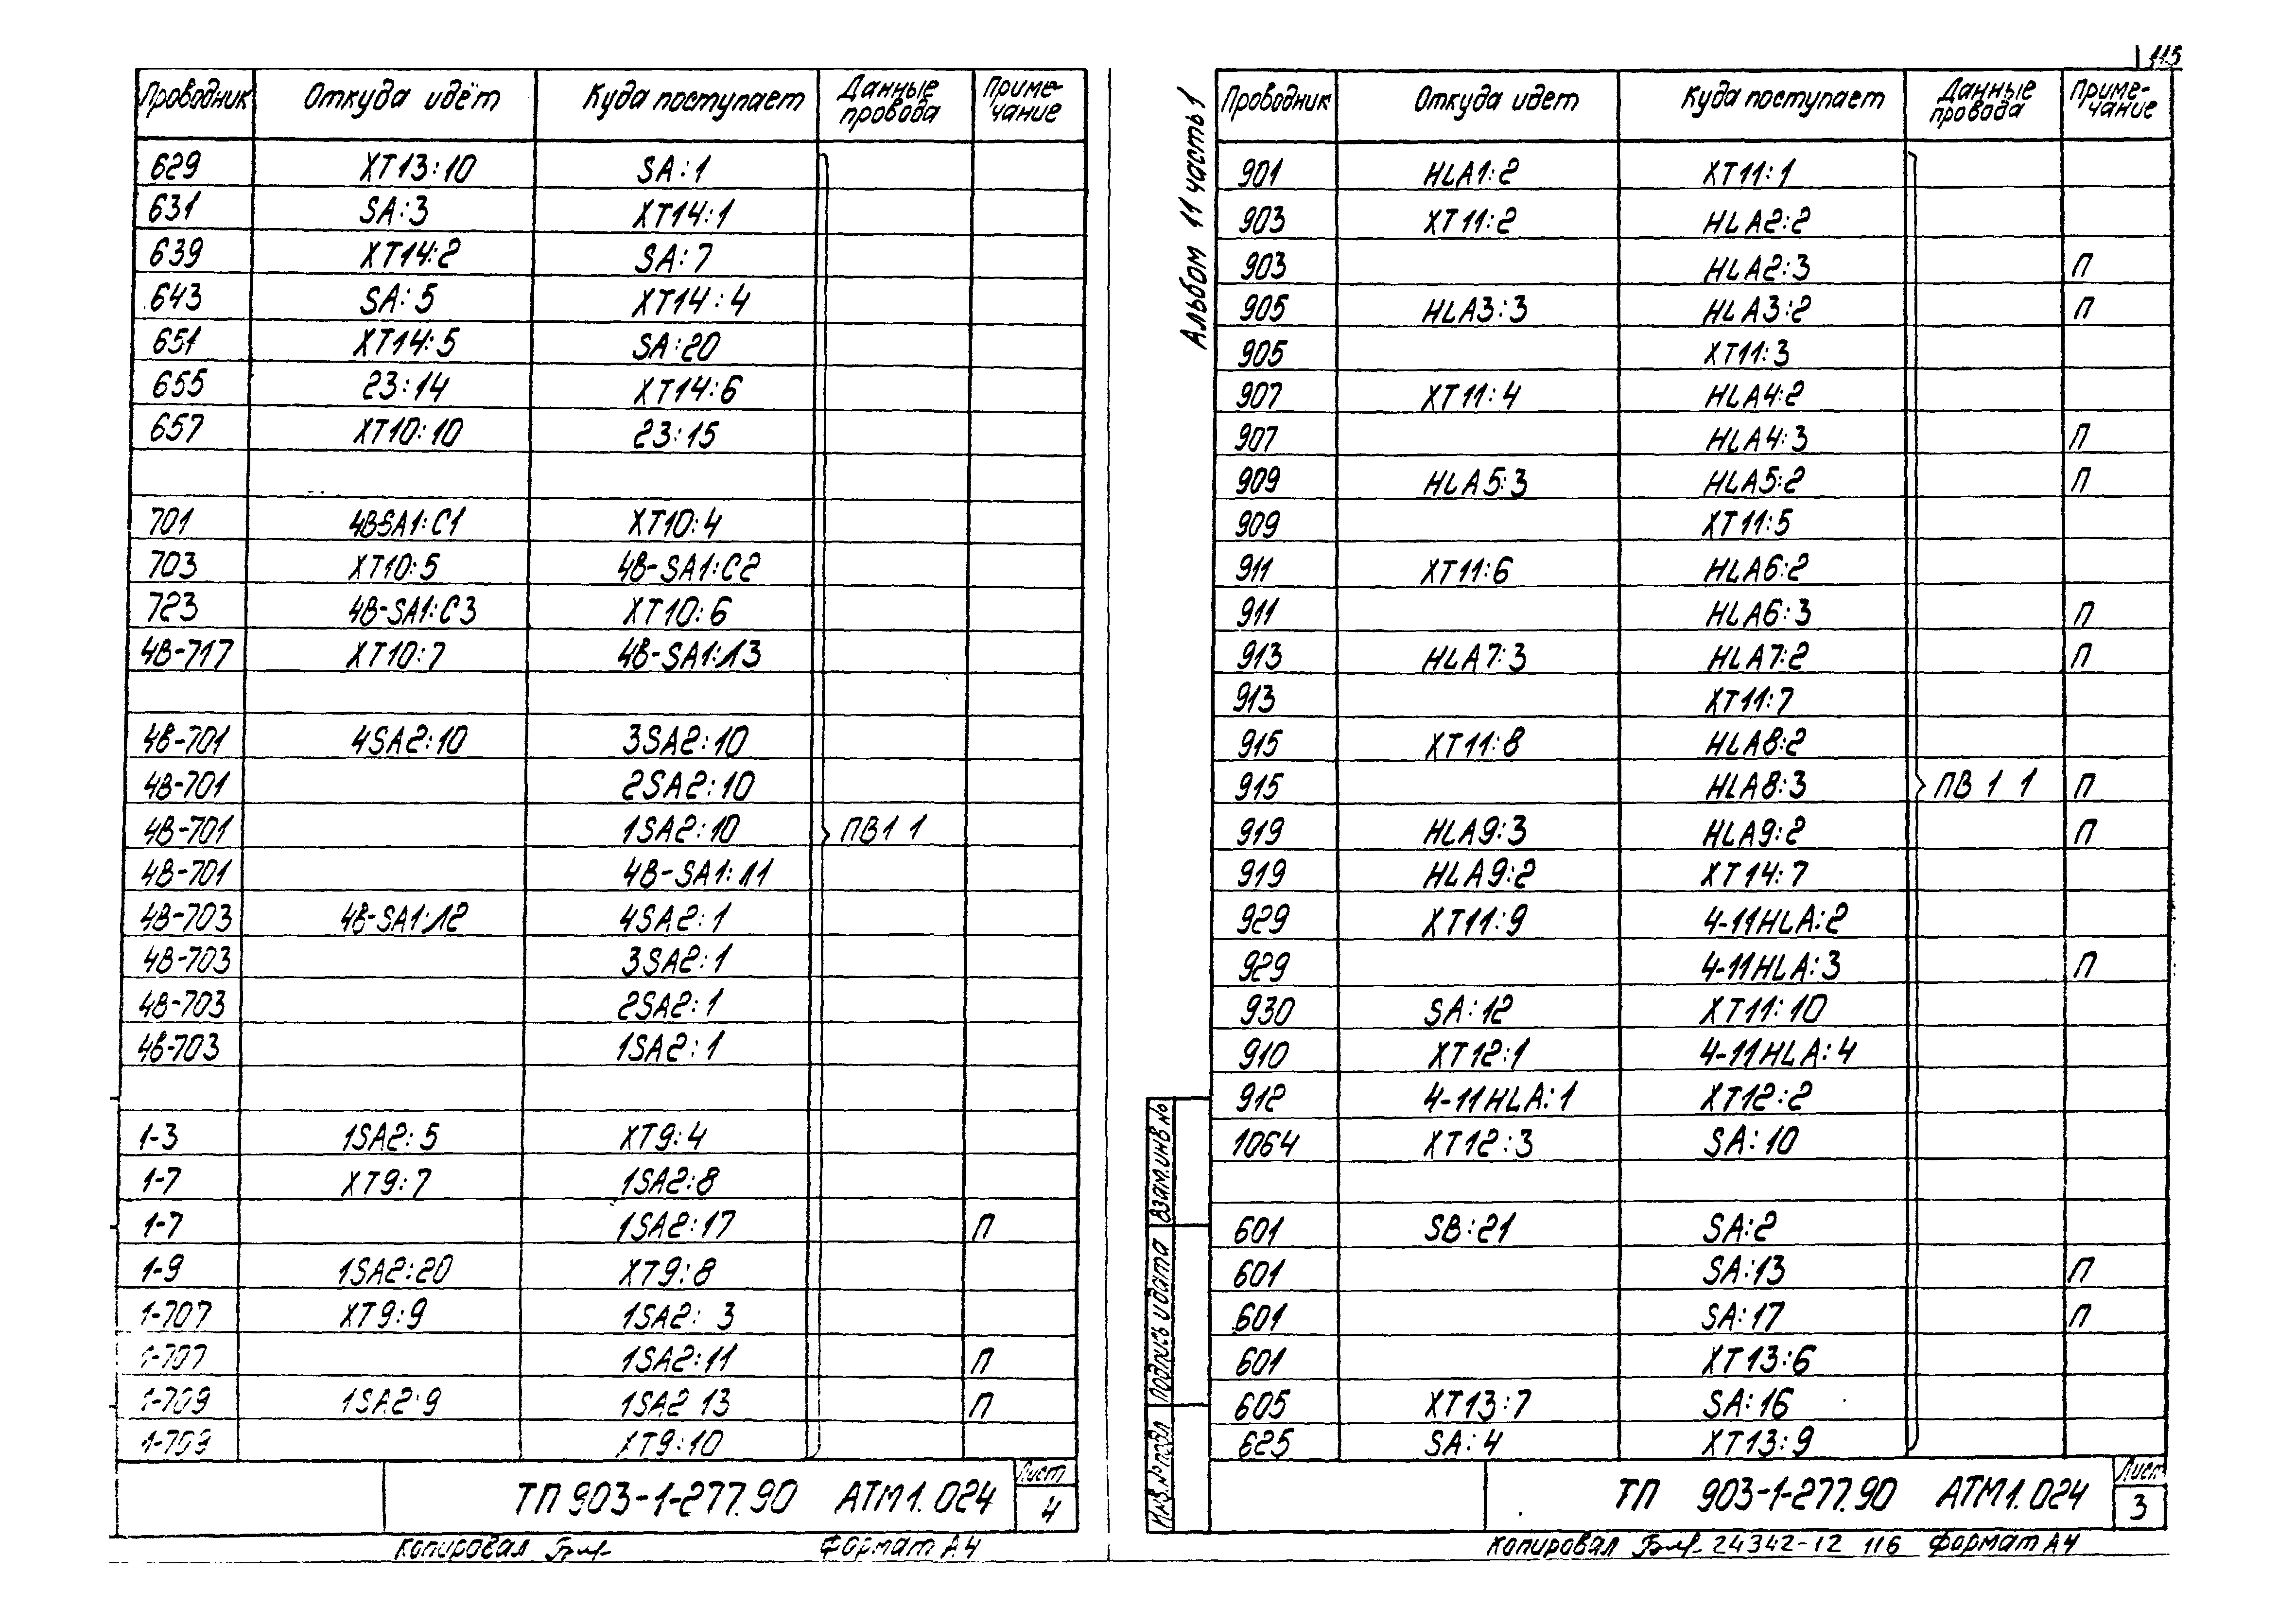 115
Проводник Откуда идёт Куда поступает Данные провода Приме-чание
629 XT13:10 SA:1
631 SA:3 XT14:1
639 XT14:2 SA:7
643 SA:5 XT14:4
651 XT14:5 SA:20
655 23:14 XT14:6
657 XT10:10 23:15
701 4BSA1:C1 XT10:4
703 XT10:5 4B-SA1:C2
723 4B-SA1:C3 XT10:6
4B-717 XT10:7 4B-SA1:Л3
4B-701 4SA2:10 3SA2:10
4B-701 2SA2:10
4B-701 1SA2:10 ПВ1 1
4B-701 4B-SA1:Л1
4B-703 4B-SA1:Л2 4SA2:1
4B-703 3SA2:1
4B-703 2SA2:1
4B-703 1SA2:1
1-3 1SA2:5 XT9:4
1-7 XT9:7 1SA2:8
1-7 1SA2:17 П
1-9 1SA2:20 XT9:8
1-707 XT9:9 1SA2: 3
1-707 1SA2:11 П
1-709 1SA2:9 1SA2 13 П
1-709 XT9:10
ТП 903-1-277.90 АТМ1.024
Лист
4
Копировал Формат А4
Альбом 11 часть 1
Проводник Откуда идет Куда поступает Данные провода Приме-чание
901 HLA1:2 XT11:1
903 XT11:2 HLA2:2
903 HLA2:3 П
905 HLA3:3 HLA3:2 П
905 XT11:3
907 XT11:4 HLA4:2
907 HLA4:3 П
909 HLA5:3 HLA5:2 П
909 XT11:5
911 XT11:6 HLA6:2
911 HLA6:3 П
913 HLA7:3 HLA7:2 П
913 XT11:7
915 XT11:8 HLA8:2
915 HLA8:3 ПВ 1 1 П
919 HLA9:3 HLA9:2 П
919 HLA9:2 XT14:7
929 XT11:9 4-11HLA:2
929 4-11HLA:3 П
930 SA:12 XT11:10
910 XT12:1 4-11HLA:4
912 4-11HLA:1 XT12:2
1064 XT12:3 SA:10
601 SB:21 SA:2
601 SA:13 П
601 SA:17 П
601 XT13:6
605 XT13:7 SA:16
625 SA:4 XT13:9
Взам.инв №
Подпись и дата
Инв.№ подл
ТП 903-1-277.90 АТМ1.024
Лист
3
Копировал 24342-12 116 Формат А4